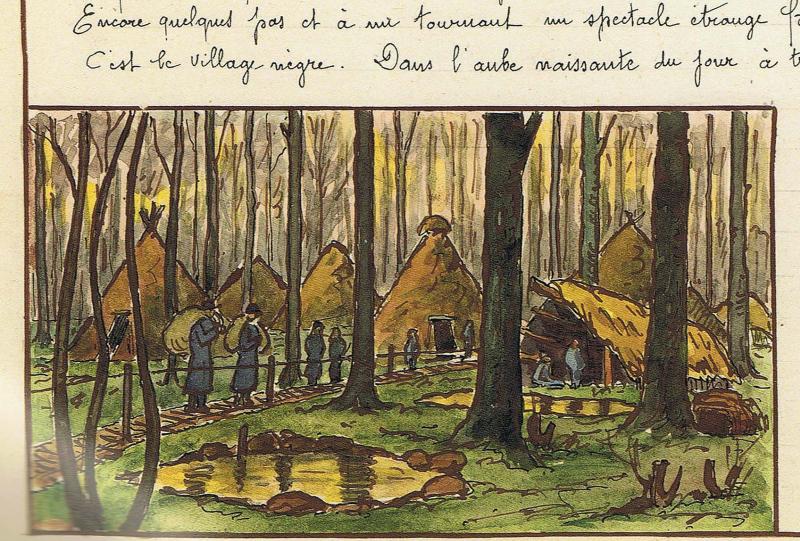 Encore quelques pas et à un tournant un spectacle étrange
C'est le village nègre. Dans l'aube naissante du jour à